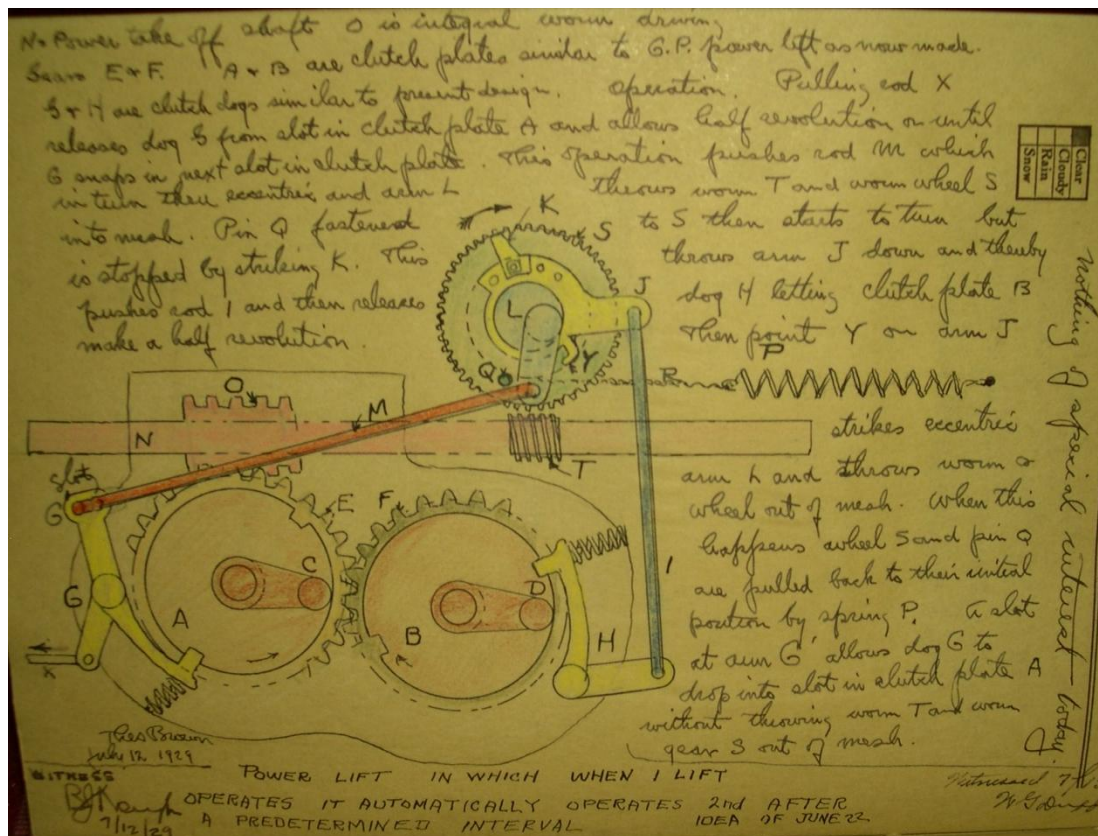 N = Power take off shaft O is integral worm driving
Gears E & F. A & B are clutch plates similar to G.P. power lift as now made.
G & H are clutch dogs similar to present design. Operation. Pulling rod X
releases dog G from slot in clutch plate A and allows half revolution or until
G snaps in next slot in clutch plate. This operation pushes rod M which
in turn thru eccentric and arm L throws worm T and worm wheel S
into mesh. Pin Q fastened to S then starts to turn but
is stopped by striking K. This throws arm J down and thereby
pushes rod I and then releases dog H letting clutch plate B
make a half revolution. Then point Y on arm J
strikes eccentric
arm L and throws worm &
wheel out of mesh. When this
happens wheel S and pin Q
are pulled back to their initial
position by spring P. A slot
at arm G allows dog G to
drop into slot in clutch plate A
without throwing worm T and worm
gear S out of mesh.
Clear
Cloudy
Rain
Snow
Nothing of special interest today.
K
S
J
L
Q
Y
R
P
O
M
N
T
slot
G
E
F
C
D
G
A
B
H
I
X
Theo Brown
July 12 1929
WITNESS
7/12/29
POWER LIFT IN WHICH WHEN 1 LIFT
OPERATES IT AUTOMATICALLY OPERATES 2nd AFTER
A PREDETERMINED INTERVAL
IDEA OF JUNE 22
Witnessed